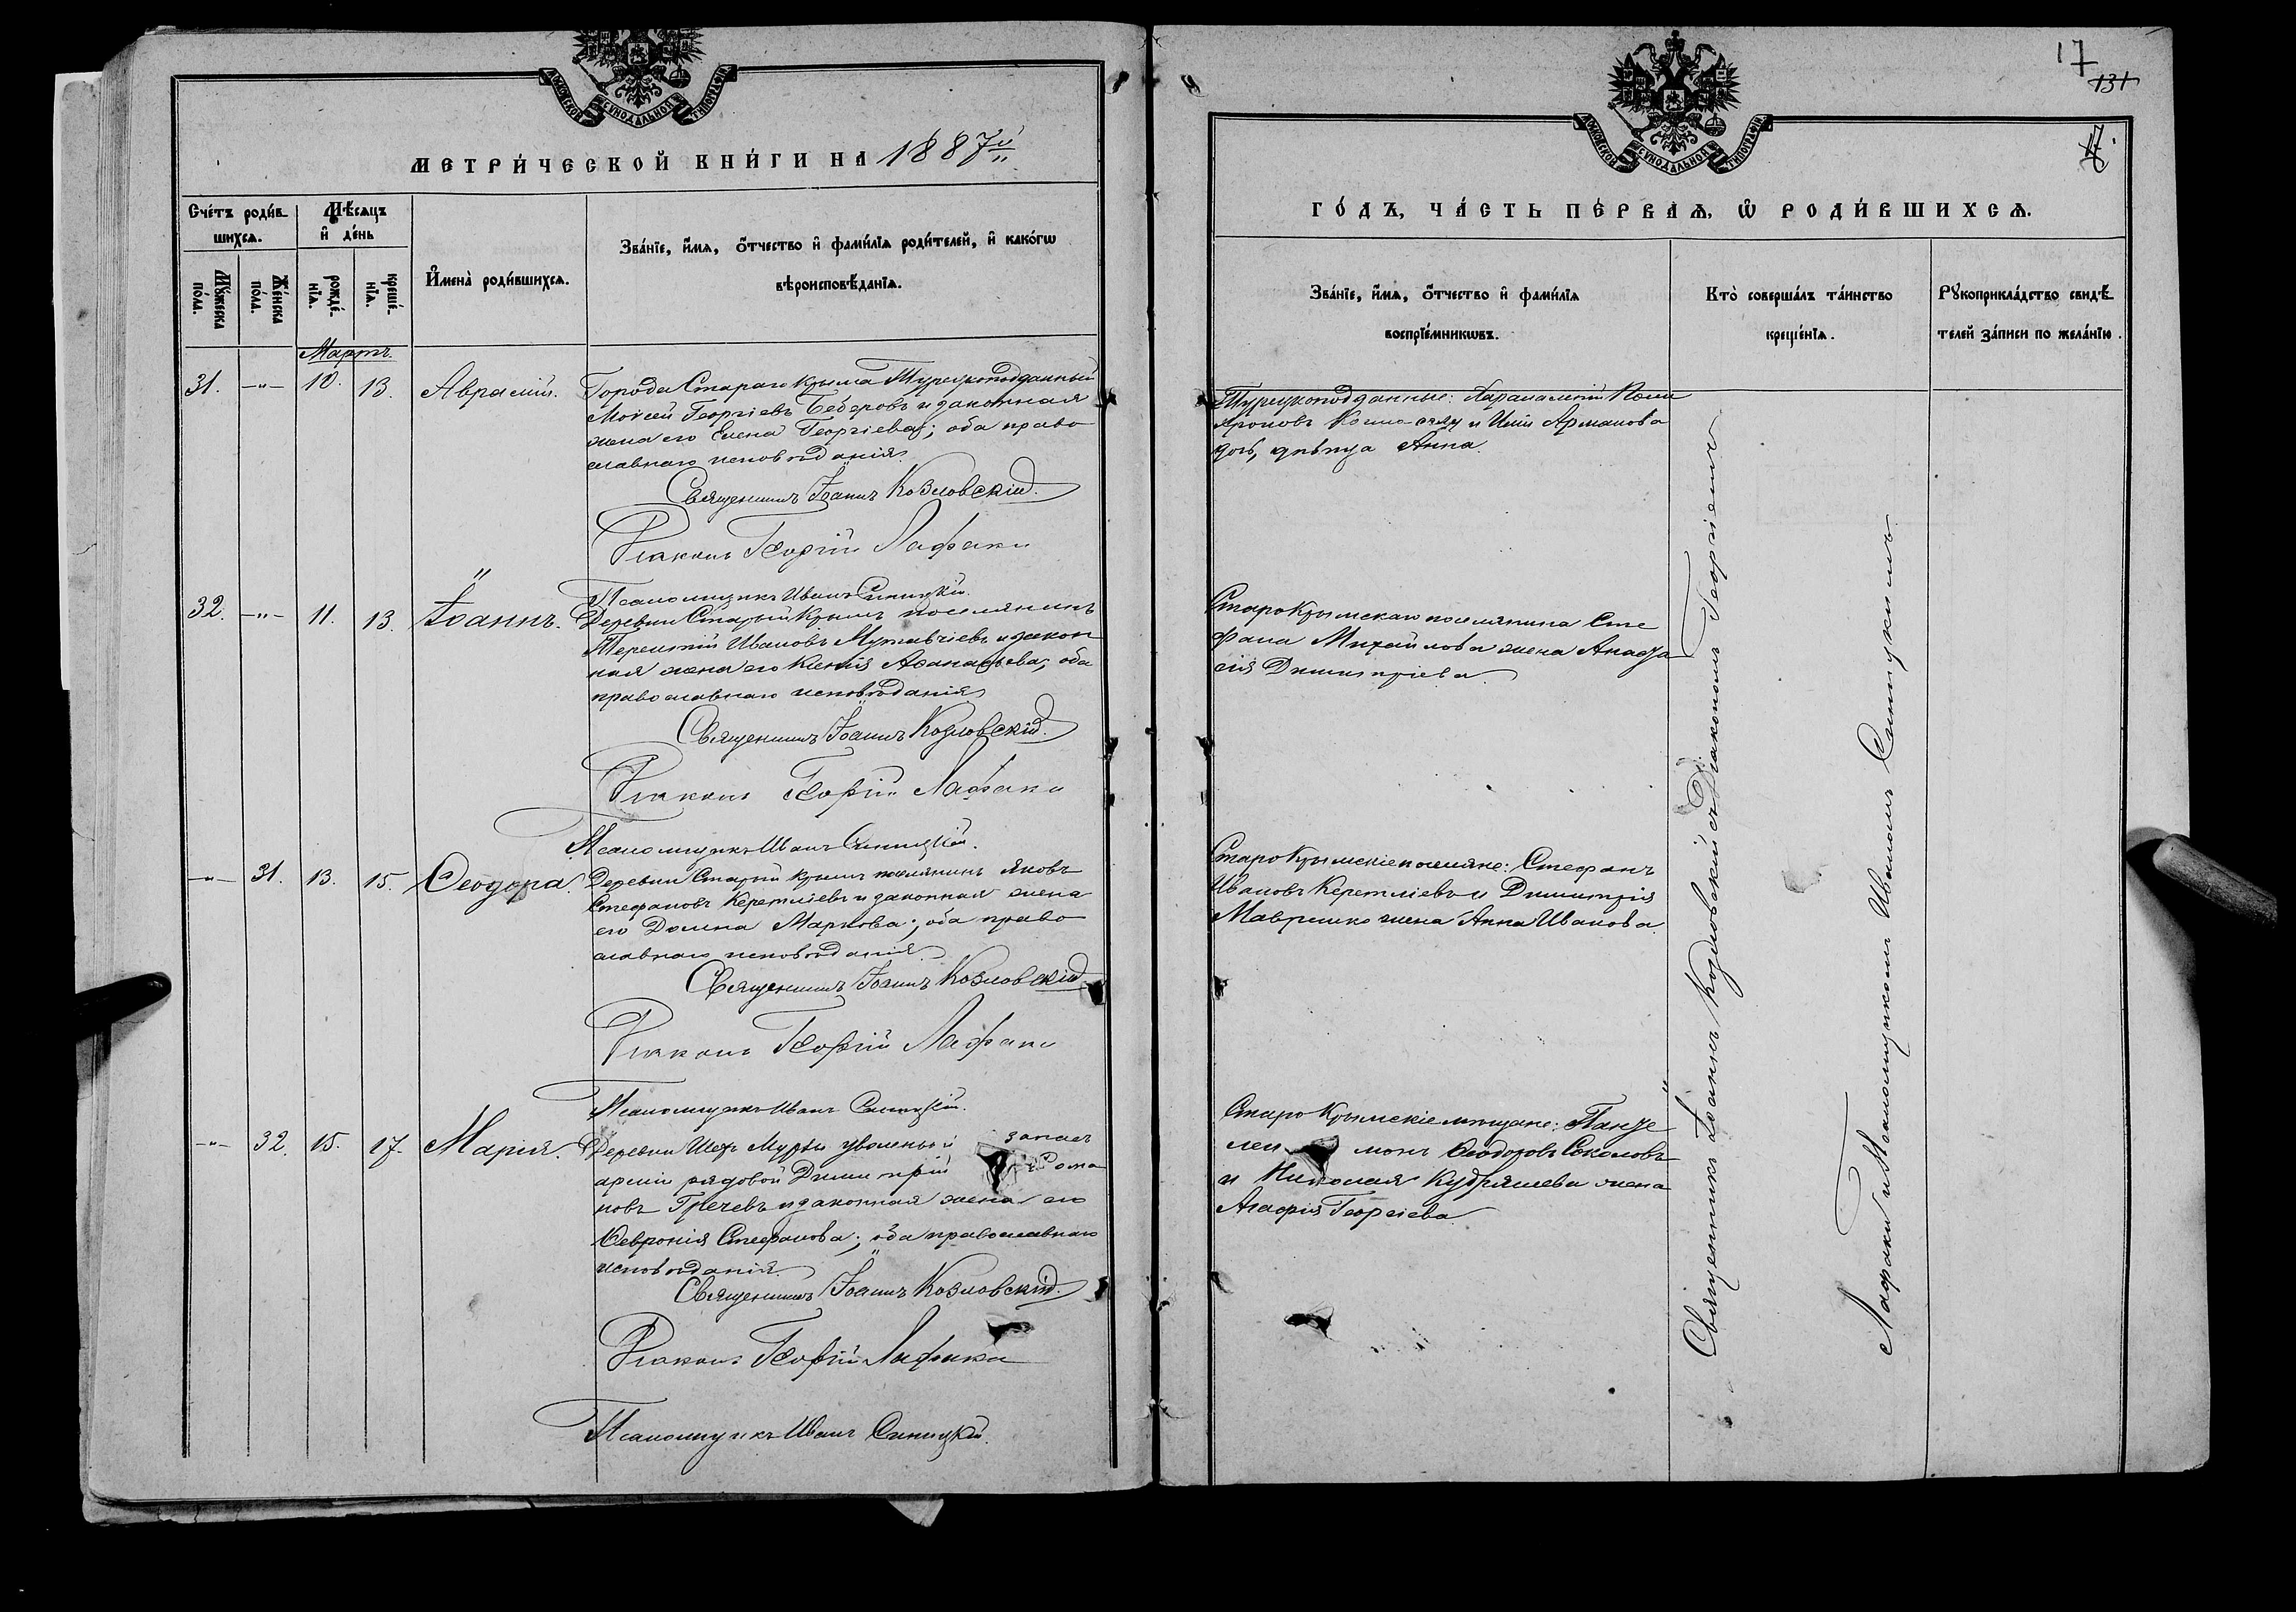 МОСКОВСКОЙ СѴНОДАЛЬНОЙ ТИПОГРАФІИ
МЕТРИ́ЧЕСКОЙ КНИ́ГИ НА 1887й
Сче́тъ роди́вшихсѧ.
Мꙋ́жеска по́ла.
Же́нска по́ла.
Мѣ́сѧцъ и҆ де́нь
рожде́нїѧ.
креще́нїѧ.
И҆мена̀ роди́вшихсѧ.
Зва́нїе, и҆́мѧ, ѻ҆́тчество и҆ фами́лїѧ роди́телей, и҆ како́гѡ
вѣроисповѣ́данїѧ.
Мартъ.
31. —"— 10. 13. Аврамій.
Города Стараго Крыма Турецкоподданный
Моисей Георгіевъ Беберовъ и законная
жена его Елена Георгіева; оба право
славнаго исповѣданія.
Священникъ Іоаннъ Козловскій.
Діаконъ Георгій Лафаки
Псаломщикъ Иванъ Синицкій.
32. —"— 11. 13. Іоаннъ.
Деревни Старый Крымъ поселянинъ
Терентій Ивановъ и закон
ная жена его Ксенія Аѳанасьева; оба
православнаго исповѣданія
Священникъ Іоаннъ Козловскій.
Діаконъ Георгій Лафаки
Псаломщикъ Иванъ Синицкій.
—"— 31. 13. 15. Ѳеодора.
Деревни Старый Крымъ поселянинъ Яковъ
Стефановъ Керемлiевъ и законная жена
его Домна Маркова; оба право
славнаго исповѣданія.
Священникъ Іоаннъ Козловскій
Діаконъ Георгій Лафаки
Псаломщикъ Иванъ Синицкій.
—"— 32. 15. 17. Марія.
Деревни Шехъ Мурзы уволенный запас
арміи рядовой Димитрій Рома
новъ Гречевъ и законная жена его
Ѳевронія Стефанова; оба православнаго
исповѣданія.
Священникъ Іоаннъ Козловскій.
Діаконъ Георгій Лафаки
Псаломщикъ Иванъ Синицкій.
17
131
17.
МОСКОВСКОЙ СѴНОДАЛЬНОЙ ТИПОГРАФІИ
ГО́ДЪ, ЧА́СТЬ ПЕ́РВАѦ, Ѡ҆ РОДИ́ВШИХСѦ.
Зва́нїе, и҆́мѧ, ѻ҆́тчество и҆ фами́лїѧ
воспрїе́мникѡвъ.
Кто̀ соверша́лъ та́инство
креще́нїѧ.
Рꙋкоприкла́дство свидѣ́-
телей за́писи по жела́нїю.
Турецкоподданные: Харалампій
и Арманова
дочь, дѣвица Анна.
Старокрымскаго поселянина Сте
фана Михайлова жена Анаста
сія Димитріева.
Старокрымскіе поселяне: Стефанъ
Ивановъ Керемлiевъ и Димитрія
Мавришко жена Анна Иванова.
Старокрымскіе мѣщане: Панте
лей монъ Ѳеодоровъ Соколовъ
и Николая Кудряшева жена
Агафія Георгіева.
Священникъ Іоаннъ Козловскій съ Діакономъ Георгіемъ
Лафаки и Псаломщикомъ Иваномъ Синицкимъ.